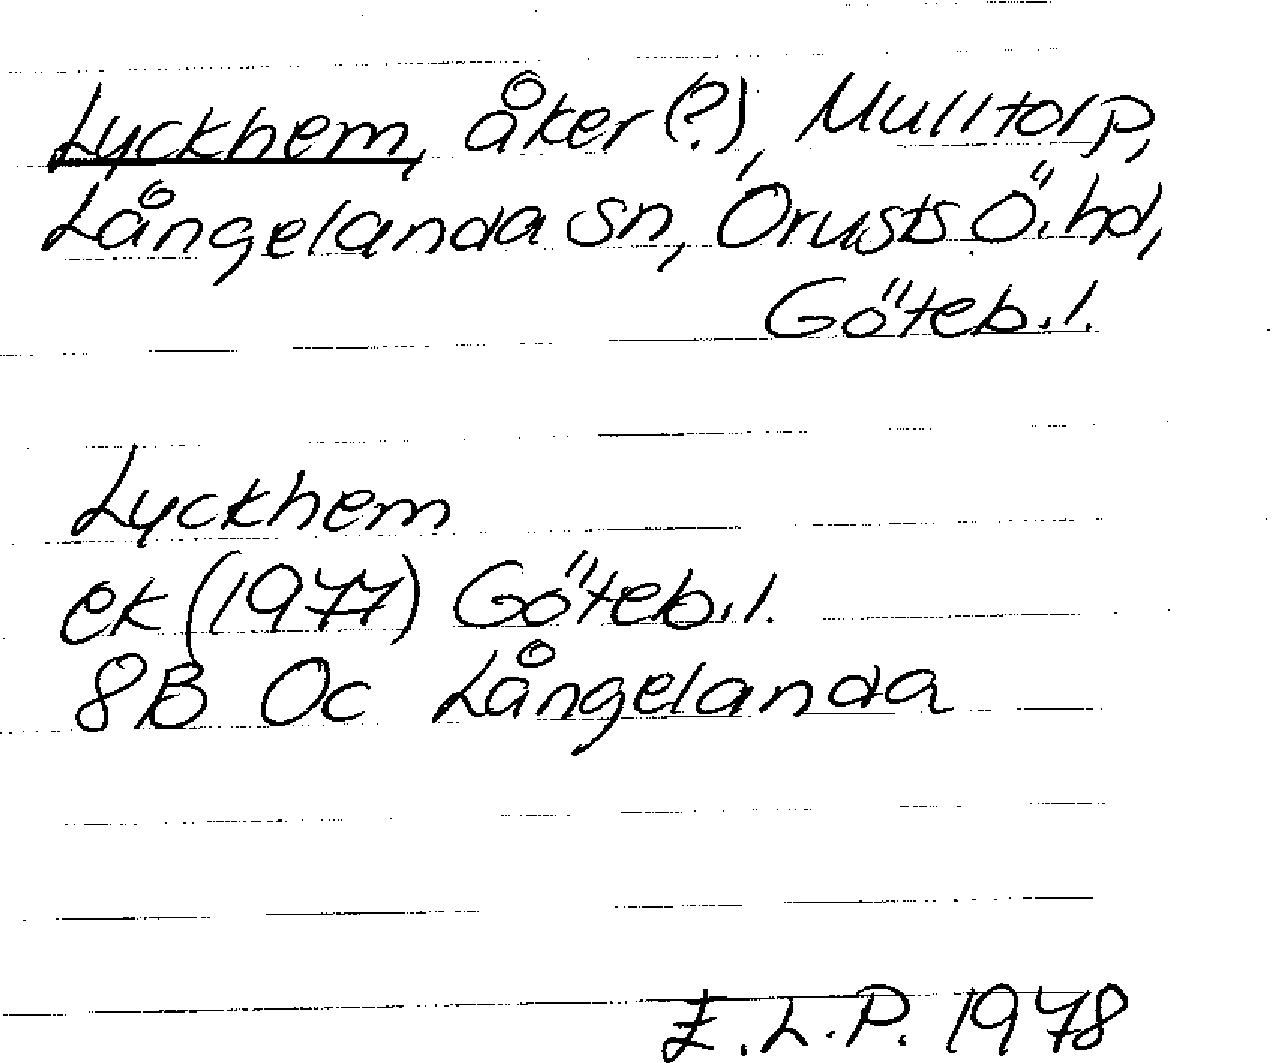 Lyckhem, åker (?), Mulltorp,
Långelanda sn, Orusts Ö. hd,
Göteb. l.
Lyckhem
ek (1977) Göteb. l.
8B Oc Långelanda
E. L. P. 1978